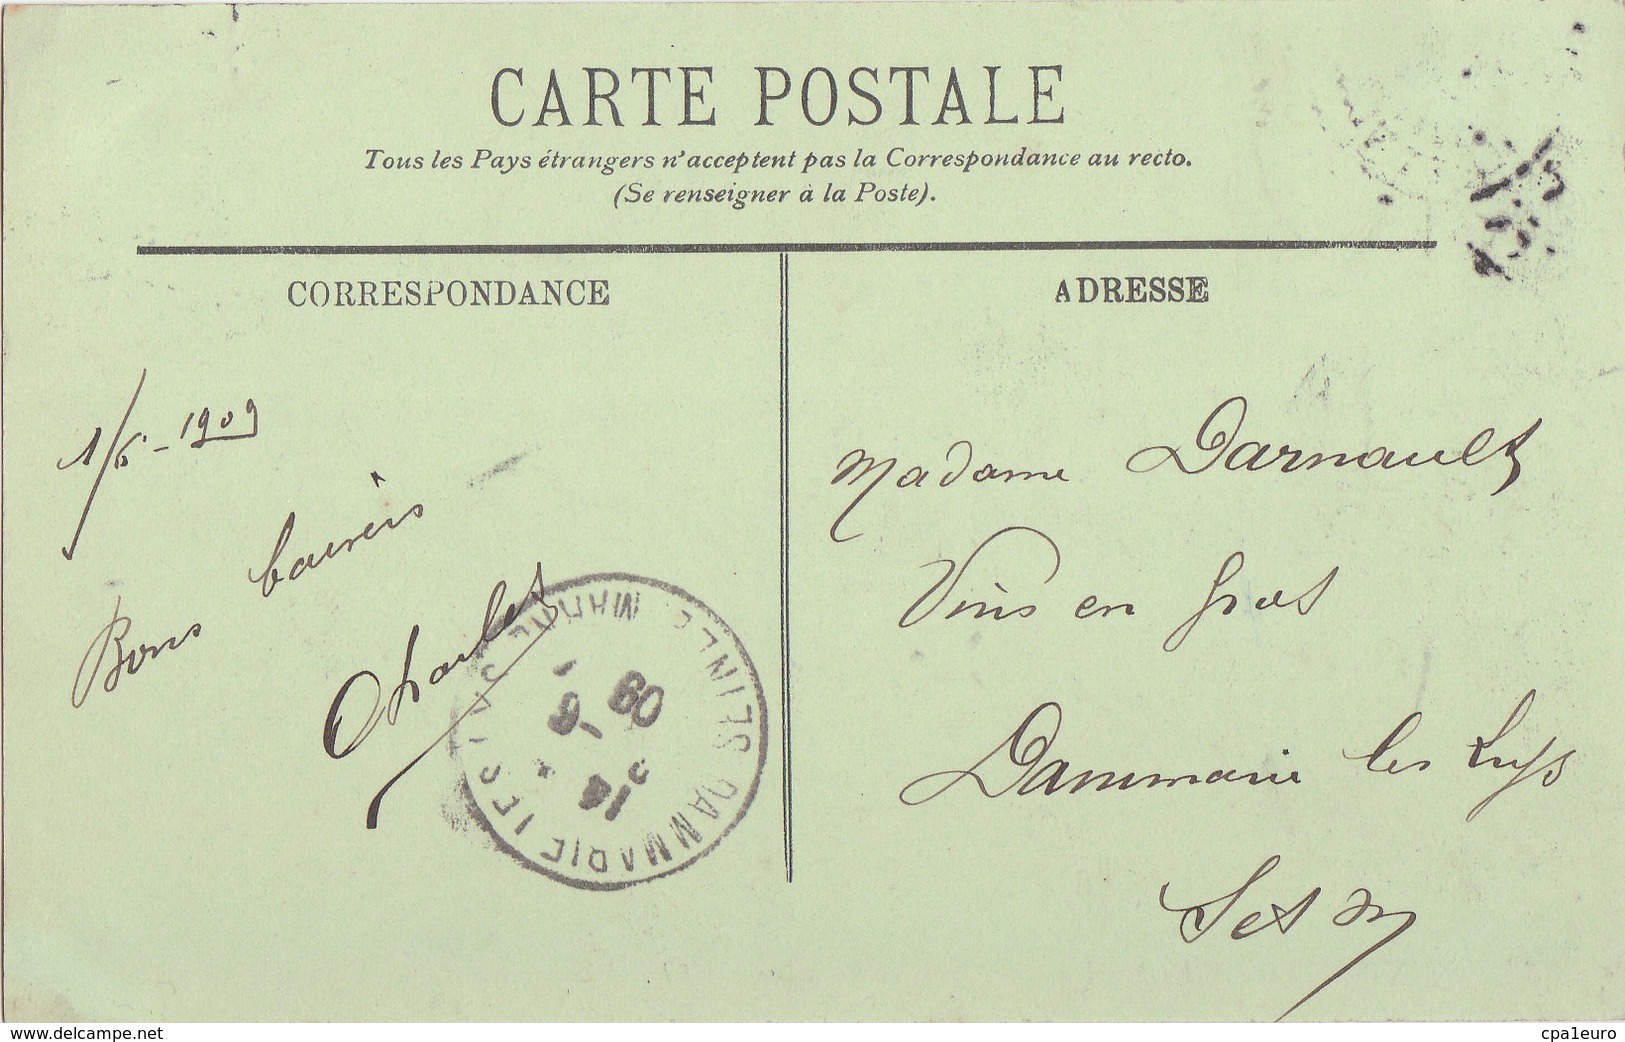 CARTE POSTALE
Tous les Pays étrangers n'acceptent pas la Correspondance au recto.
(Se renseigner à la Poste).
CORRESPONDANCE
1/6 - 1909
Bons baisers
Charles
ADRESSE
Madame Darnault
Vins en gros
Dammarie les Lys
S et M
DAMMARIE LES LYS
SEINE ET MARNE
14
1-6
09
www.delcampe.net
cpa1euro